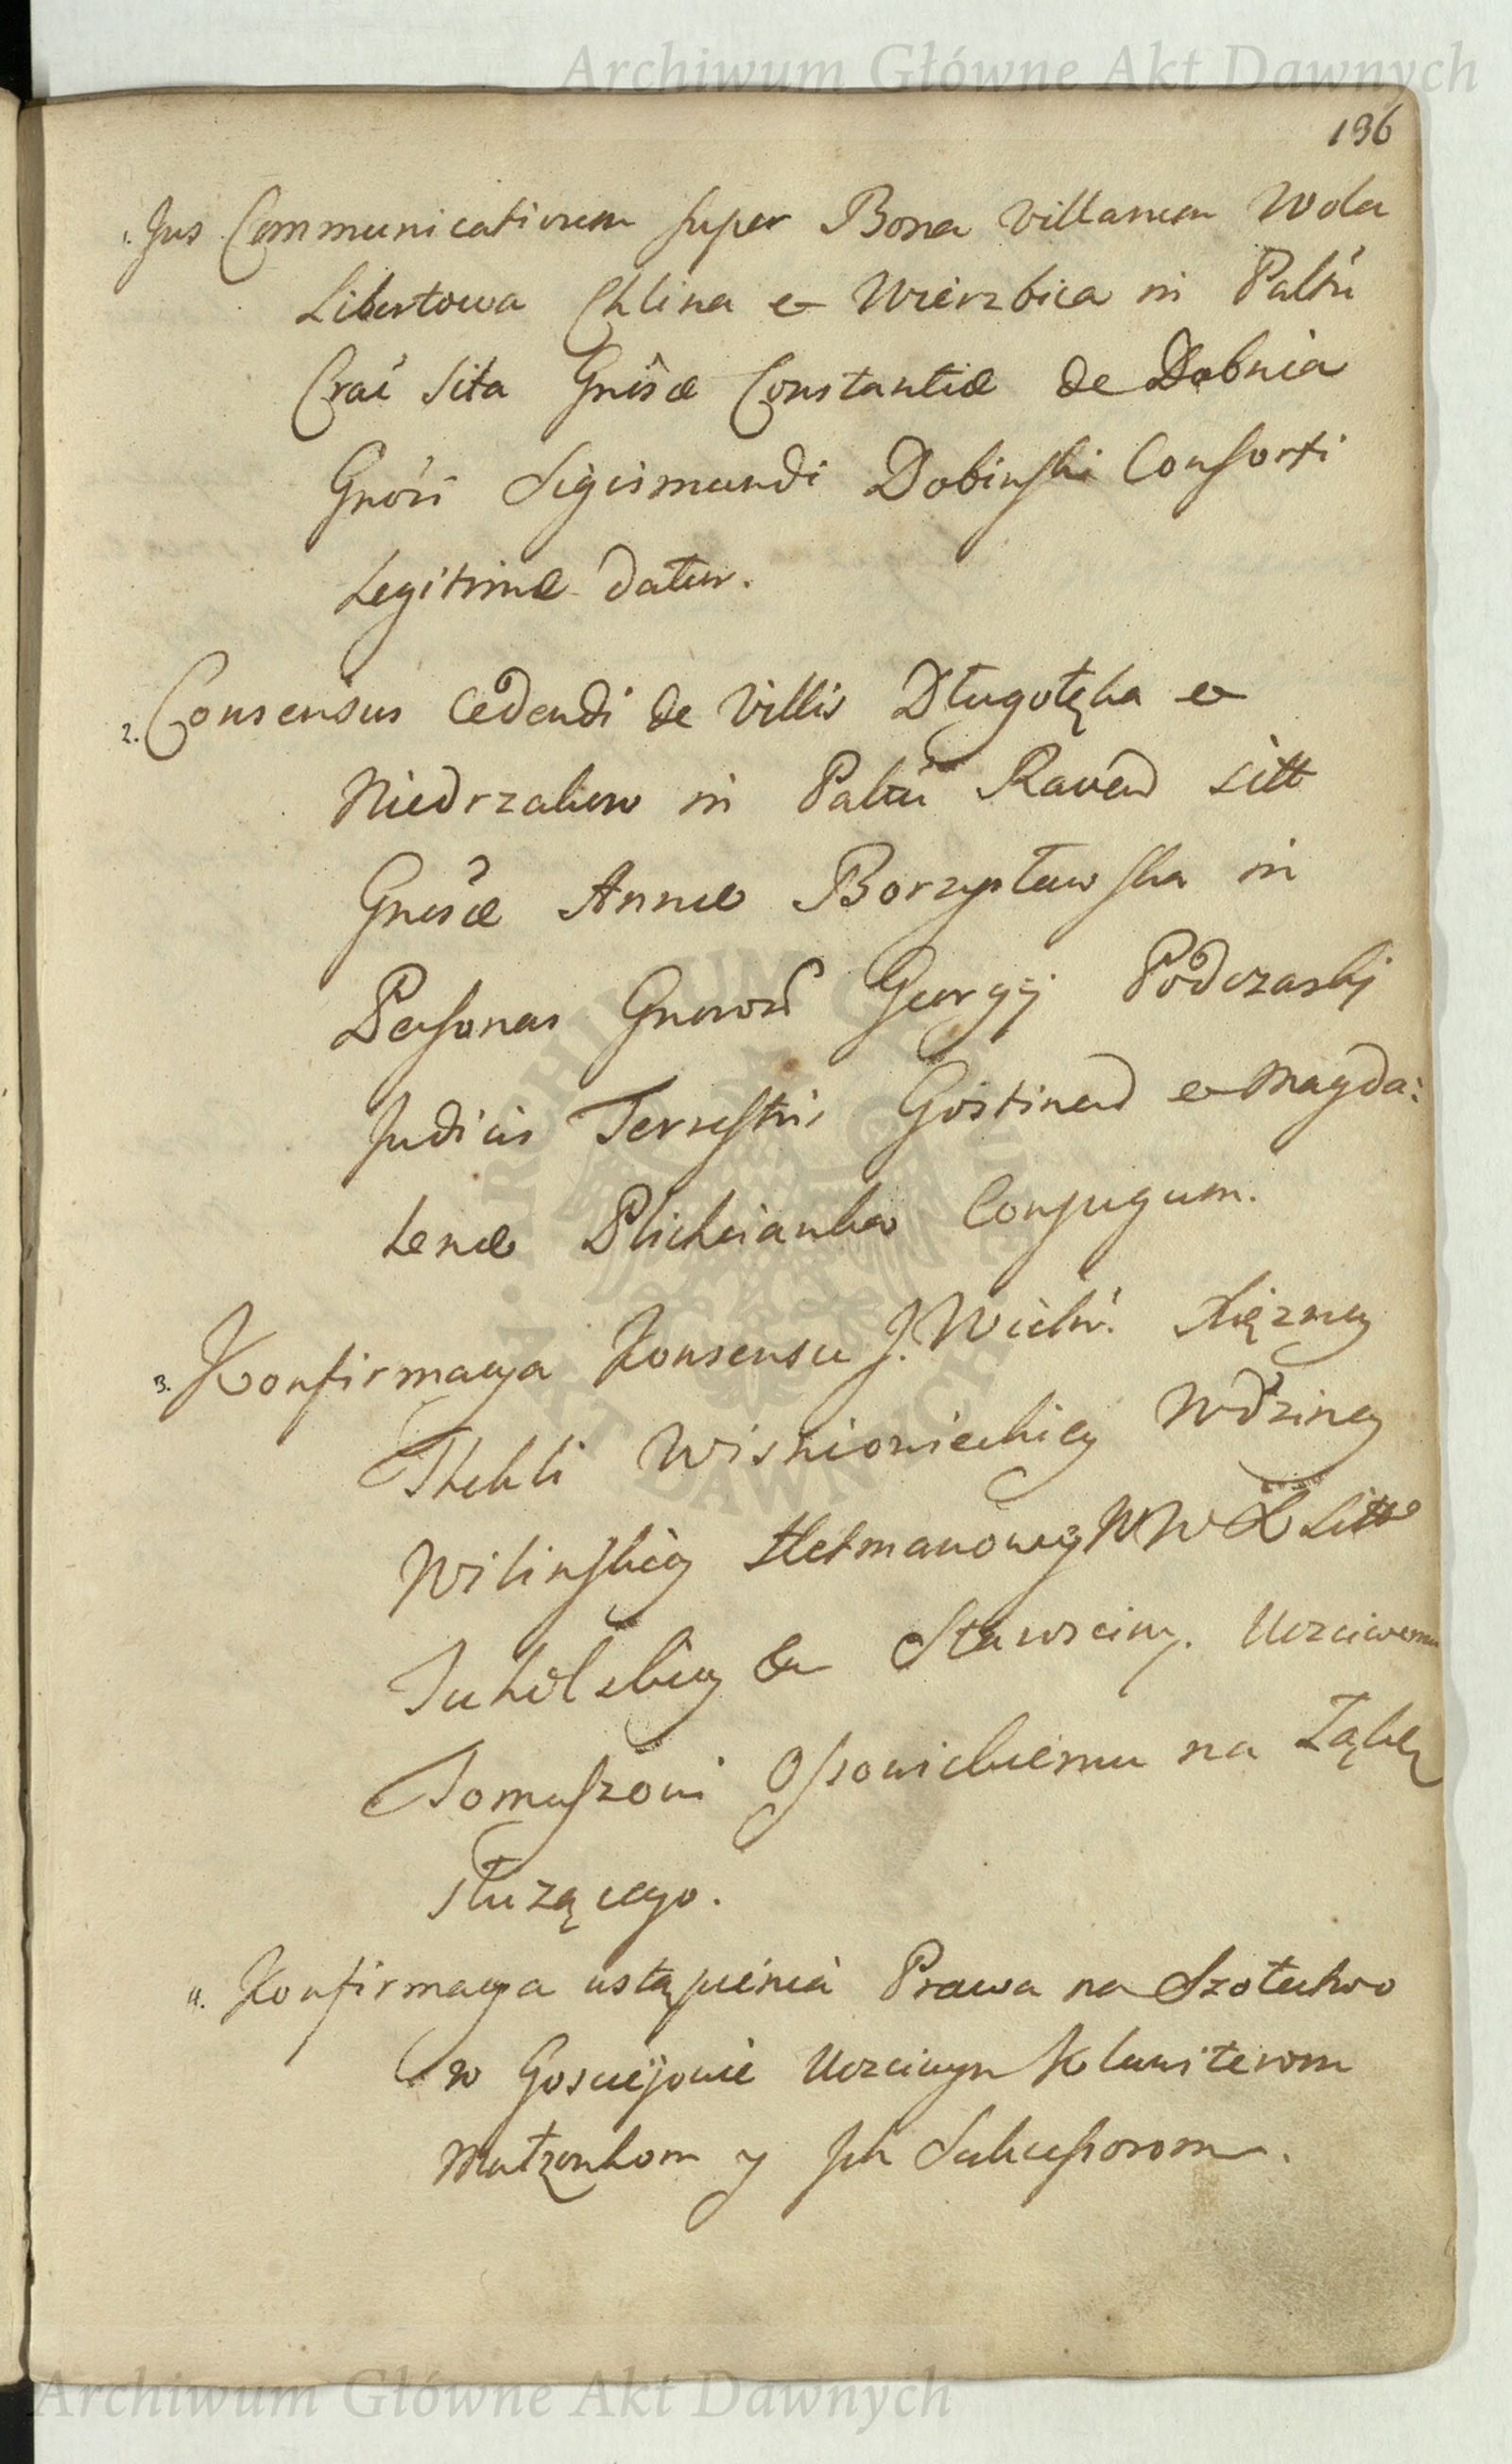 Archiwum Główne Akt Dawnych
196
1. Jus Communicativum super Bona villarum Wola
Libertowa Chlina et Wierzbica in Paltu
Crac sita Gnisæ Constantiæ de Dobnia
Gnosi Sigismundi Dobinski Consorti
Legitimæ datur.
2. Consensus cedendi de Villis Długołęka et
Niedrzakow in Paltu Raven sitt
Gnisæ Annæ Borzysławska in
Personas Gnoror Georgij Podczaski
Judicis Terrestris Gostinen et Magda:
lenæ Plichcianka Conjugum.
3. Konfirmacya Konsensu J. Wielm. Xiężney
Thekli Wisniowieckiey Wdziney
Wilinskiey Hetmanowey W W X Litto
Tucholskiey &c Starosciny. Uczciwemu
Tomaszowi Ossowickiemu na Łąkę
służącego.
4. Konfirmacya ustąpienia Prawa na Szołectwo
w Gosciejowie Uczciwym Klawiterom
Małzonkom y Jch Sukcessorom.
ARCHIWUM GŁÓWNE AKT DAWNYCH
Archiwum Główne Akt Dawnych